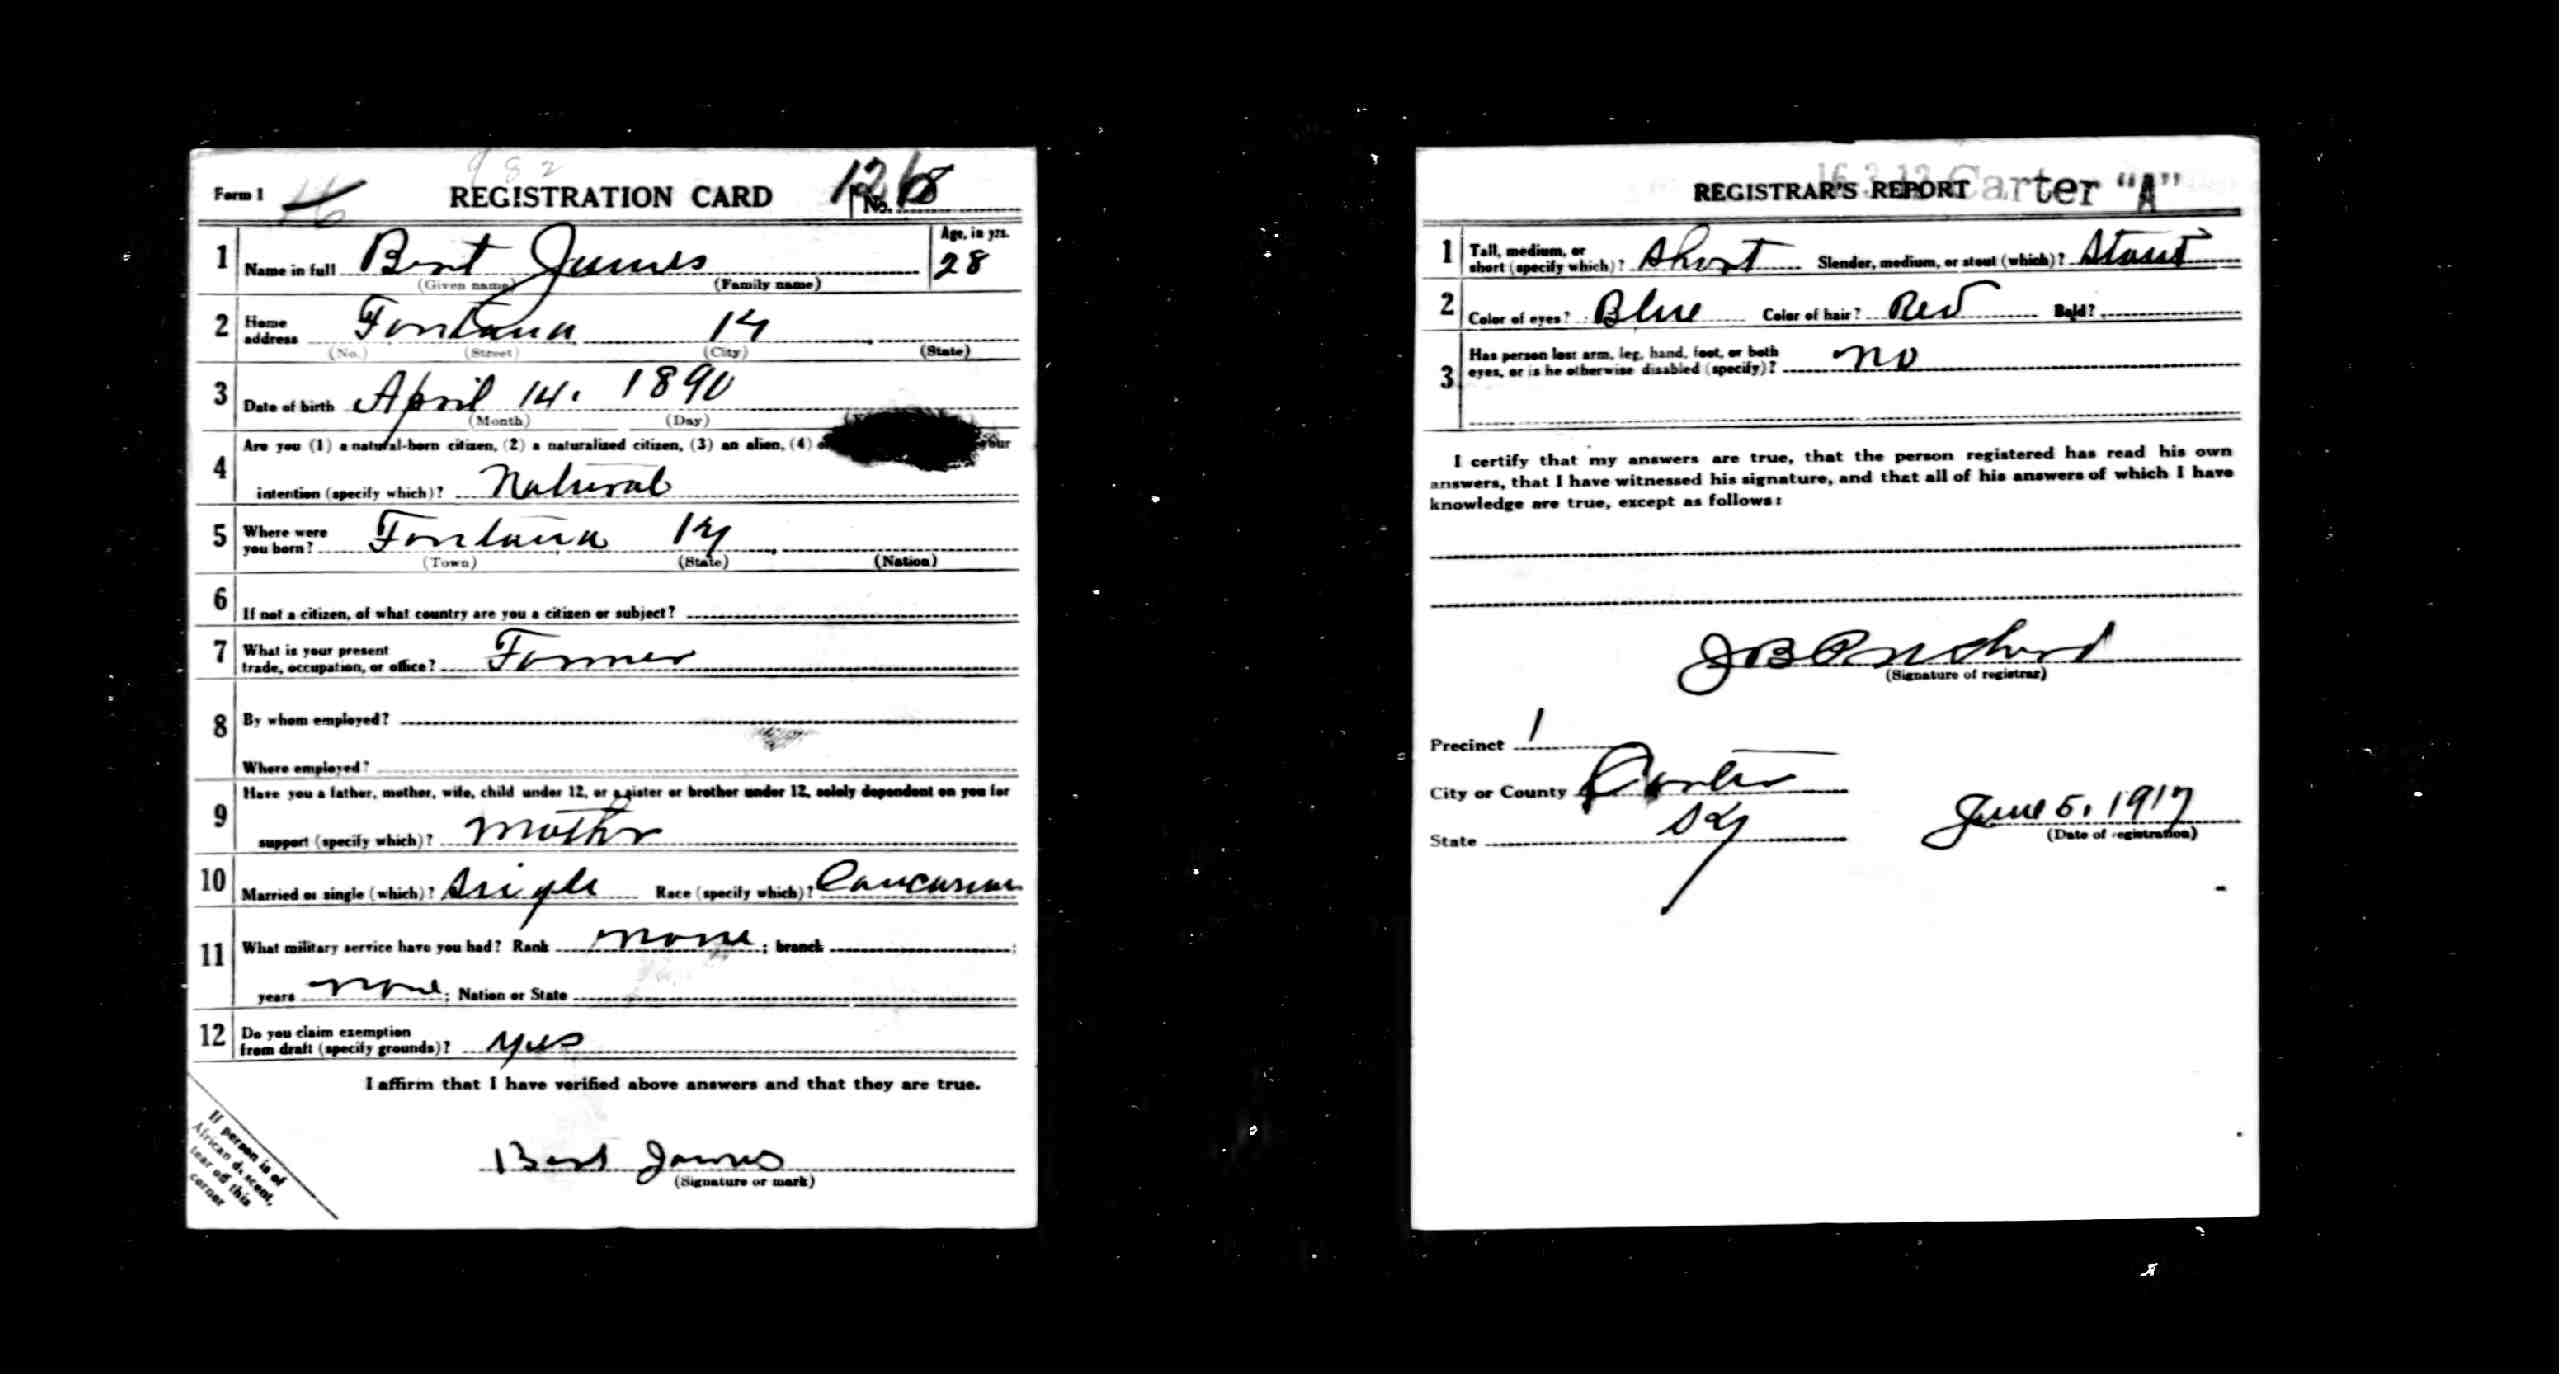 982
Form 1 REGISTRATION CARD No. 126
1 Name in full Bert James Age, in yrs. 28
(Given name) (Family name)
2 Home address Fontana Ky
(No.) (Street) (City) (State)
3 Date of birth April 14, 1890
(Month) (Day)
4 Are you (1) a natural-born citizen, (2) a naturalized citizen, (3) an alien, (4) your
intention (specify which)? Natural
5 Where were you born? Fontana Ky
(Town) (State) (Nation)
6 If not a citizen, of what country are you a citizen or subject?
7 What is your present
trade, occupation, or office? Farmer
8 By whom employed?
Where employed?
9 Have you a father, mother, wife, child under 12, or a sister or brother under 12, solely dependent on you for
support (specify which)? Mother
10 Married or single (which)? Single Race (specify which)? Caucasian
11 What military service have you had? Rank none ; branch ;
years none ; Nation or State
12 Do you claim exemption
from draft (specify grounds)? yes
I affirm that I have verified above answers and that they are true.
Bert James
(Signature or mark)
If person is of
African descent,
tear off this
corner
REGISTRAR'S REPORT Carter "A"
1 Tall, medium, or
short (specify which)? Short Slender, medium, or stout (which)? Stout
2 Color of eyes? Blue Color of hair? Red Bald?
3 Has person lost arm, leg, hand, foot, or both
eyes, or is he otherwise disabled (specify)? no
I certify that my answers are true, that the person registered has read his own
answers, that I have witnessed his signature, and that all of his answers of which I have
knowledge are true, except as follows:
J B Prichard
(Signature of registrar)
Precinct 1
City or County Carter
State Ky
June 5, 1917
(Date of registration)